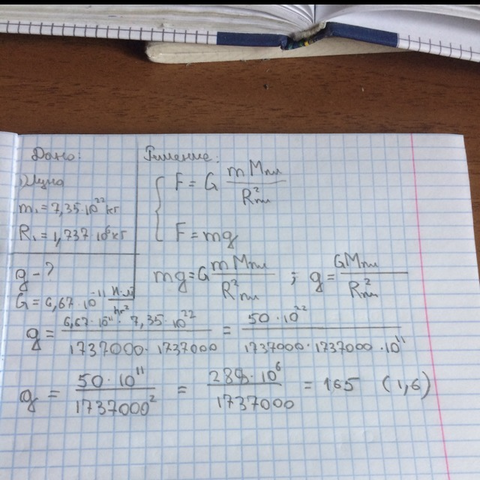 Дано:
1) Луна
m₁ = 7,35 · 10²² кг
R₁ = 1,737 · 10⁶ кг
g - ?
G = 6,67 · 10⁻¹¹ Н·м²/кг²
Решение:
F = G mMпл / R²пл
F = mg
mg = G mMпл / R²пл ; g = GMпл / R²пл
g = 6,67 · 10¹¹ · 7,35 · 10²² / 1737000 · 1737000 = 50 · 10²² / 1737000 · 1737000 · 10¹¹
g = 50 · 10¹¹ / 1737000² = 288 · 10⁶ / 1737000 = 165 (1,6)